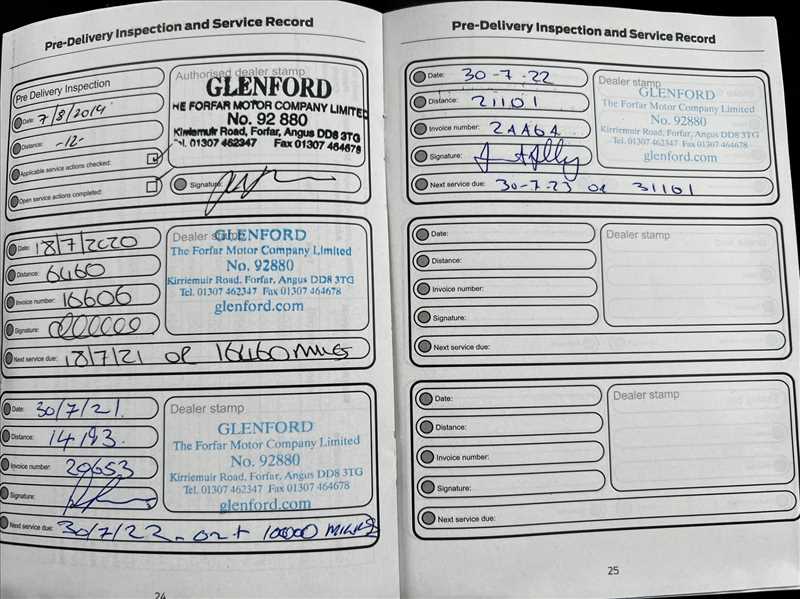 Pre-Delivery Inspection and Service Record
Pre Delivery Inspection
Date: 7/8/2019
Distance: -12-
Applicable service actions checked:
Open service actions completed:
Authorised dealer stamp
GLENFORD
THE FORFAR MOTOR COMPANY LIMITED
No. 92 880
Kirriemuir Road, Forfar, Angus DD8 3TG
Tel. 01307 462347 Fax 01307 464678
Signature:
Date: 18/7/2020
Distance: 6460
Invoice number: 16606
Signature:
Next service due: 18/7/21 or 16460 miles
Dealer stamp
GLENFORD
The Forfar Motor Company Limited
No. 92880
Kirriemuir Road, Forfar, Angus DD8 3TG
Tel. 01307 462347 Fax 01307 464678
glenford.com
Date: 30/7/21.
Distance: 14193.
Invoice number: 20653
Signature:
Next service due: 30/7/22 - or + 10000 MILES
Dealer stamp
GLENFORD
The Forfar Motor Company Limited
No. 92880
Kirriemuir Road, Forfar, Angus DD8 3TG
Tel. 01307 462347 Fax 01307 464678
glenford.com
24
Pre-Delivery Inspection and Service Record
Date: 30-7-22
Distance: 21101
Invoice number: 24464
Signature:
Next service due: 30-7-23 or 31101
Dealer stamp
GLENFORD
The Forfar Motor Company Limited
No. 92880
Kirriemuir Road, Forfar, Angus DD8 3TG
Tel. 01307 462347 Fax 01307 464678
glenford.com
Date:
Distance:
Invoice number:
Signature:
Next service due:
Dealer stamp
Date:
Distance:
Invoice number:
Signature:
Next service due:
Dealer stamp
25